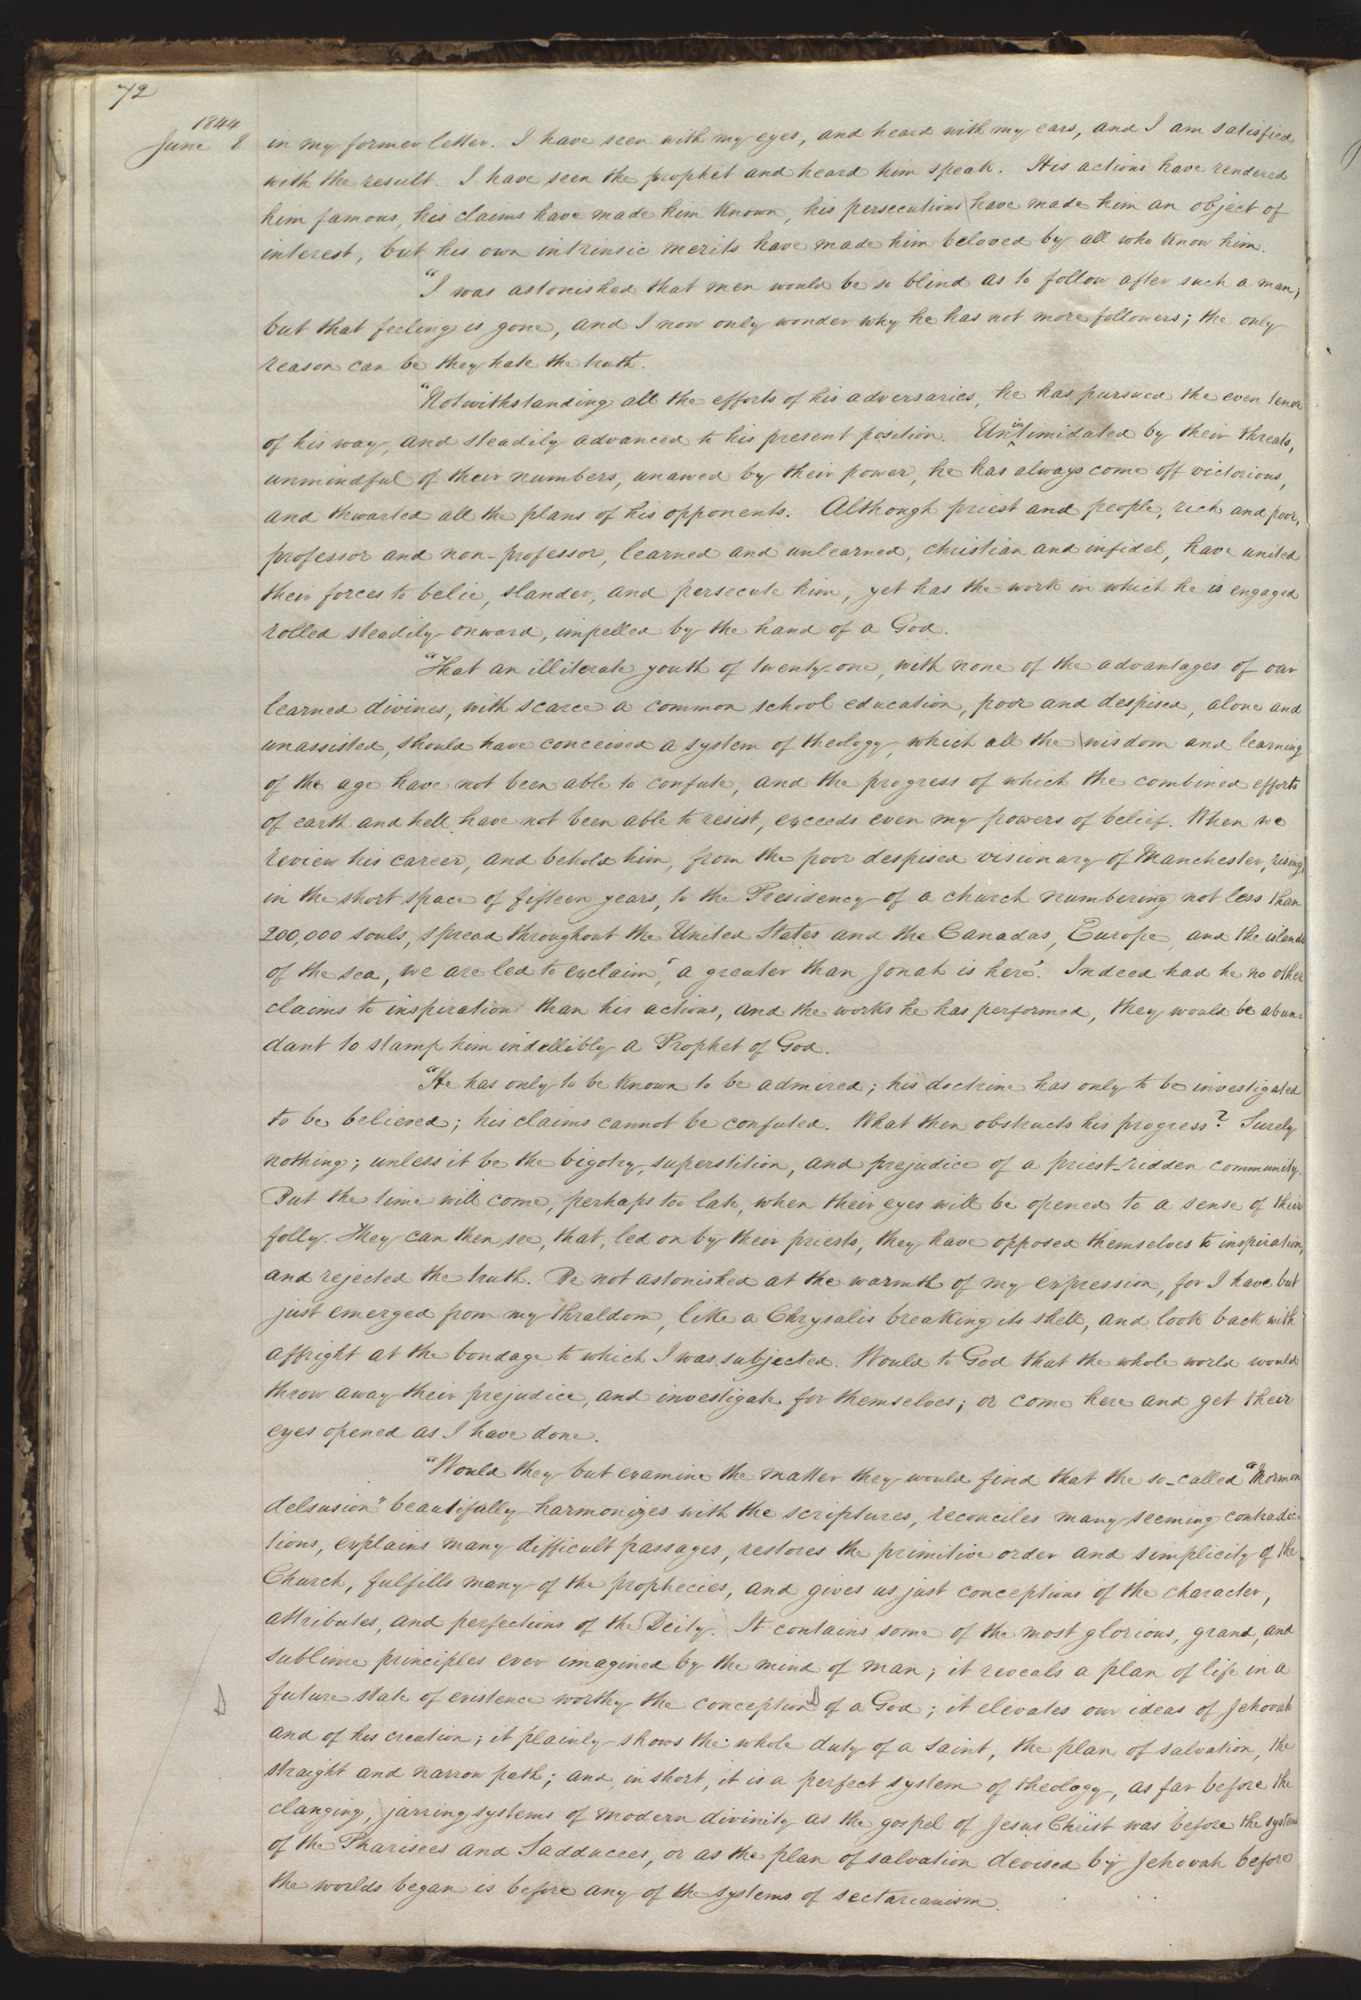 72
1844
June 8
in my former letter. I have seen with my eyes, and heard with my ears, and I am satisfied
with the result. I have seen the prophet and heard him speak. His actions have rendered
him famous, his claims have made him known, his persecutions have made him an object of
interest, but his own intrinsic merits have made him beloved by all who know him.
"I was astonished that men would be so blind as to follow after such a man;
but that feeling is gone, and I now only wonder why he has not more followers; the only
reason can be they hate the truth.
"Notwithstanding all the efforts of his adversaries, he has pursued the even tenor
of his way, and steadily advanced to his present position. Unintimidated by their threats,
unmindful of their numbers, unawed by their power, he has always come off victorious,
and thwarted all the plans of his opponents. Although priest and people, rich and poor,
professor and non-professor, learned and unlearned, christian and infidel, have united
their forces to belie, slander, and persecute him, yet has the work in which he is engaged
rolled steadily onward, impelled by the hand of a God.
"That an illiterate youth of twenty-one, with none of the advantages of our
learned divines, with scarce a common school education, poor and despised, alone and
unassisted, should have conceived a system of theology, which all the wisdom and learning
of the age have not been able to confute, and the progress of which the combined efforts
of earth and hell have not been able to resist, exceeds even my powers of belief. When we
review his career, and behold him, from the poor despised visionary of Manchester, rising
in the short space of fifteen years, to the Presidency of a church numbering not less than
200,000 souls, spread throughout the United States and the Canadas, Europe, and the islands
of the sea, we are led to exclaim, 'a greater than Jonah is here'. Indeed had he no other
claims to inspiration than his actions, and the works he has performed, they would be abun=
dant to stamp him indellibly a Prophet of God.
"He has only to be known to be admired; his doctrine has only to be investigated
to be believed; his claims cannot be confuted. What then obstructs his progress? Surely
nothing; unless it be the bigotry, superstition, and prejudice of a priest-ridden community.
But the time will come, perhaps too late, when their eyes will be opened to a sense of their
folly. They can then see, that, led on by their priests, they have opposed themselves to inspiration,
and rejected the truth. Be not astonished at the warmth of my expression, for I have but
just emerged from my thraldom, like a Chrysalis breaking its shell, and look back with
affright at the bondage to which I was subjected. Would to God that the whole world would
throw away their prejudice, and investigate for themselves; or come here and get their
eyes opened as I have done.
"Would they but examine the matter they would find that the so-called "Mormon
delsusion" beautifully harmonizes with the scriptures, reconciles many seeming contradic-
tions, explains many difficult passages, restores the primitive order and simplicity of the
Church, fulfills many of the prophecies, and gives us just conceptions of the character,
attributes, and perfections of the Deity. It contains some of the most glorious, grand, and
sublime principles ever imagined by the mind of man; it reveals a plan of life in a
future state of existence worthy the conceptions of a God; it elevates our ideas of Jehovah
and of his creation; it plainly shows the whole duty of a saint, the plan of salvation, the
straight and narrow path; and, in short, it is a perfect system of theology, as far before the
clanging, jarring systems of modern divinity as the gospel of Jesus Christ was before the system
of the Pharisees and Sadducees, or as the plan of salvation devised by Jehovah before
the worlds began is before any of the systems of sectarianism.